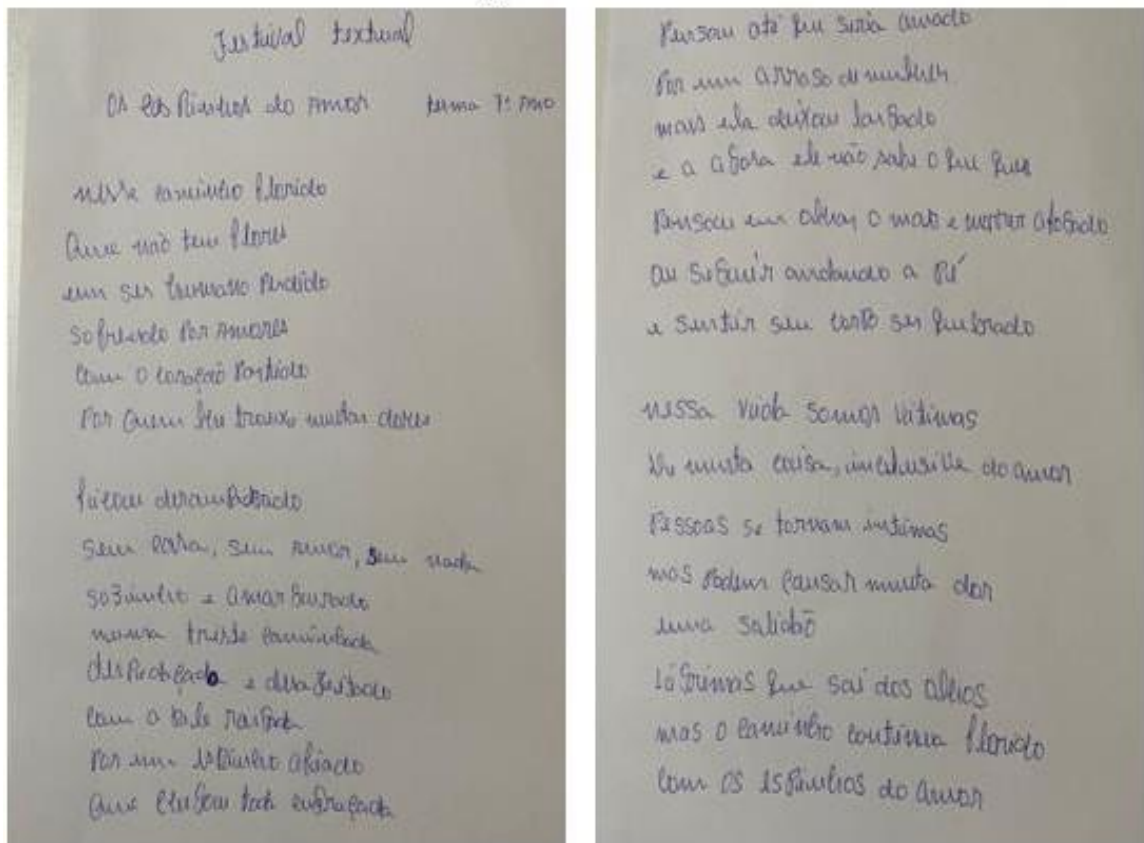 Festival textual
Os espinhos do Amor turma 7º Ano
nesse caminho florido
Que não tem flores
um ser humano perdido
sofrendo por amores
com o coração partido
Por quem lhe trouxe muitas dores
ficou desamparado
sem casa, sem amor, sem nada
sozinho e amargurado
numa triste caminhada
despedaçado e desajeitado
com a pele rasgada
Por um espinho afiado
Que chegou toda engraçada
Pensou até que seria amado
Por um arraso de mulher
mais ela deixou largado
e a agora ele não sabe o que quer
Pensou em olhar o mar e morrer afogado
ou seguir andando a pé
e sentir seu corpo ser queimado
nessa vida somos vítimas
de muita coisa, inclusive do amor
Pessoas se tornam íntimas
mas podem causar muita dor
uma solidão
lágrimas que sai dos olhos
mas o caminho continua florido
com os espinhos do amor